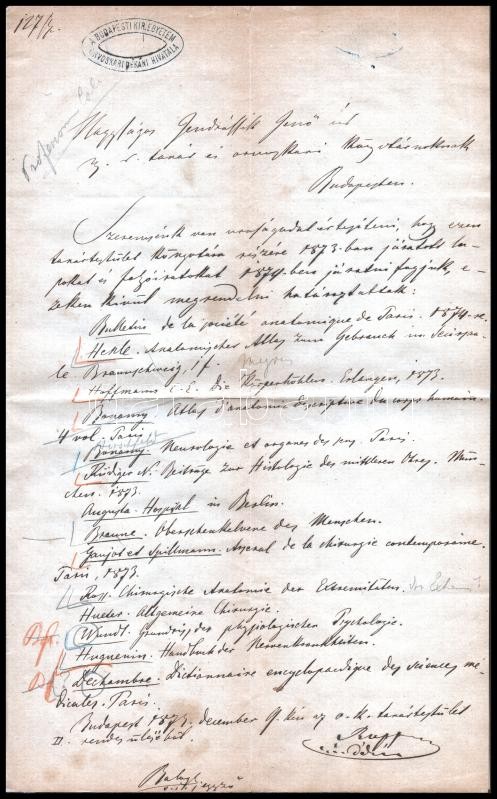 127/
A BUDAPESTI KIR. EGYETEM
ORVOSKARI DÉKÁNI HIVATALA
Nagyságos Jendrássik Jenő úr
tanár és orvoskari könyvtárnoknak
Budapesten.
Szerencsénk van nagyságodat értesíteni, hogy ezen
tanártestület könyvtára részére 1873-ban járatott la-
pokat és folyóiratokat 1874-ben járatni fogjuk, e-
zeken kívül megrendelni határoztattak:
Bulletin de la société anatomique de Paris. 1874-re.
Henle. Anatomischer Atlas zum Gebrauch im
Braunschweig,
Hoffmann C. E. Die Körperhöhlen. Erlangen, 1873.
Bonamy. Atlas d'anatomie descriptive du corps humain.
4 vol. Paris
Bonamy. Neurologie et organes des sens. Paris.
Rüdinger N. Beiträge zur Histologie des mittleren Ohres. Mün-
chen. 1873.
Augusta-Hospital in Berlin.
Braune. Oberschenkelvene des Menschen.
Gaujot et Spillmann. Arsenal de la chirurgie contemporaine.
Paris, 1873.
Chirurgische Anatomie der Extremitäten.
Hueter. Allgemeine Chirurgie.
Wundt. Grundriss der physiologischen Psychologie.
Huguenin. Handbuch der Nervenkrankheiten.
Dechambre. Dictionnaire encyclopaedique des sciences me-
dicales. Paris.
Budapest 1873. december 9-kén az o. k. tanártestület
II. rendes üléséből.
Balogh
jegyző